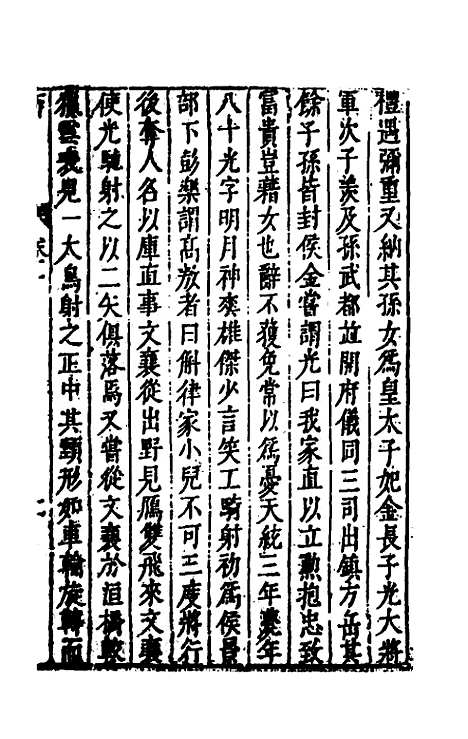 禮遇彌重又納其孫女爲皇太子妃金長子光大將
軍次子羨及孫武都並開府儀同三司出鎮方岳其
餘子孫皆封侯金嘗謂光曰我家直以立勲抱忠致
富貴豈藉女也辭不獲免常以爲憂天統三年薨年
八十光字明月神爽雄傑少言笑工騎射初爲侯景
部下彭樂謂髙敖者曰斛律家小兒不可三度將行
後奪人名以庫直事文襄從出野見鴈雙飛來文襄
使光馳射之以二矢俱落焉又嘗從文襄於洹橋較
獵雲表見一大鳥射之正中其頸形如車輪旋轉而